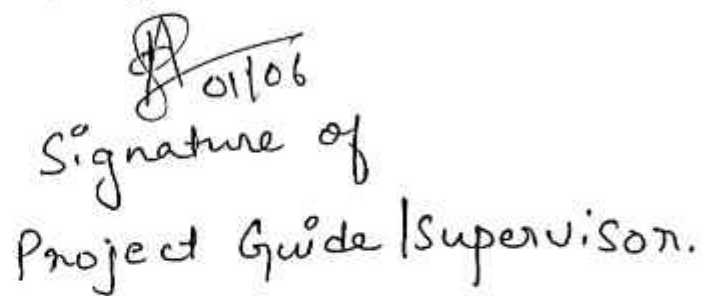 01/06
Signature of
Project Guide/Supervisor.